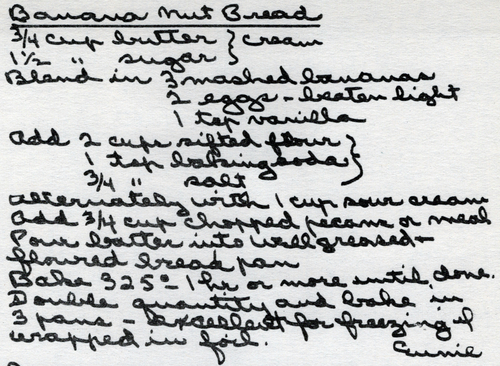 Banana Nut Bread
3/4 cup butter } cream
1 1/2 " sugar }
Blend in 3 mashed bananas
2 eggs - beaten light
1 tsp vanilla
Add 2 cups sifted flour }
1 tsp baking soda }
3/4 " salt
alternately with 1 cup sour cream
Add 3/4 cup chopped pecans or meal
Pour batter into well greased +
floured bread pan
Bake 325° - 1 hr or more until done.
Double quantity and bake in
3 pans - excellent for freezing if
wrapped in foil.
Eunie